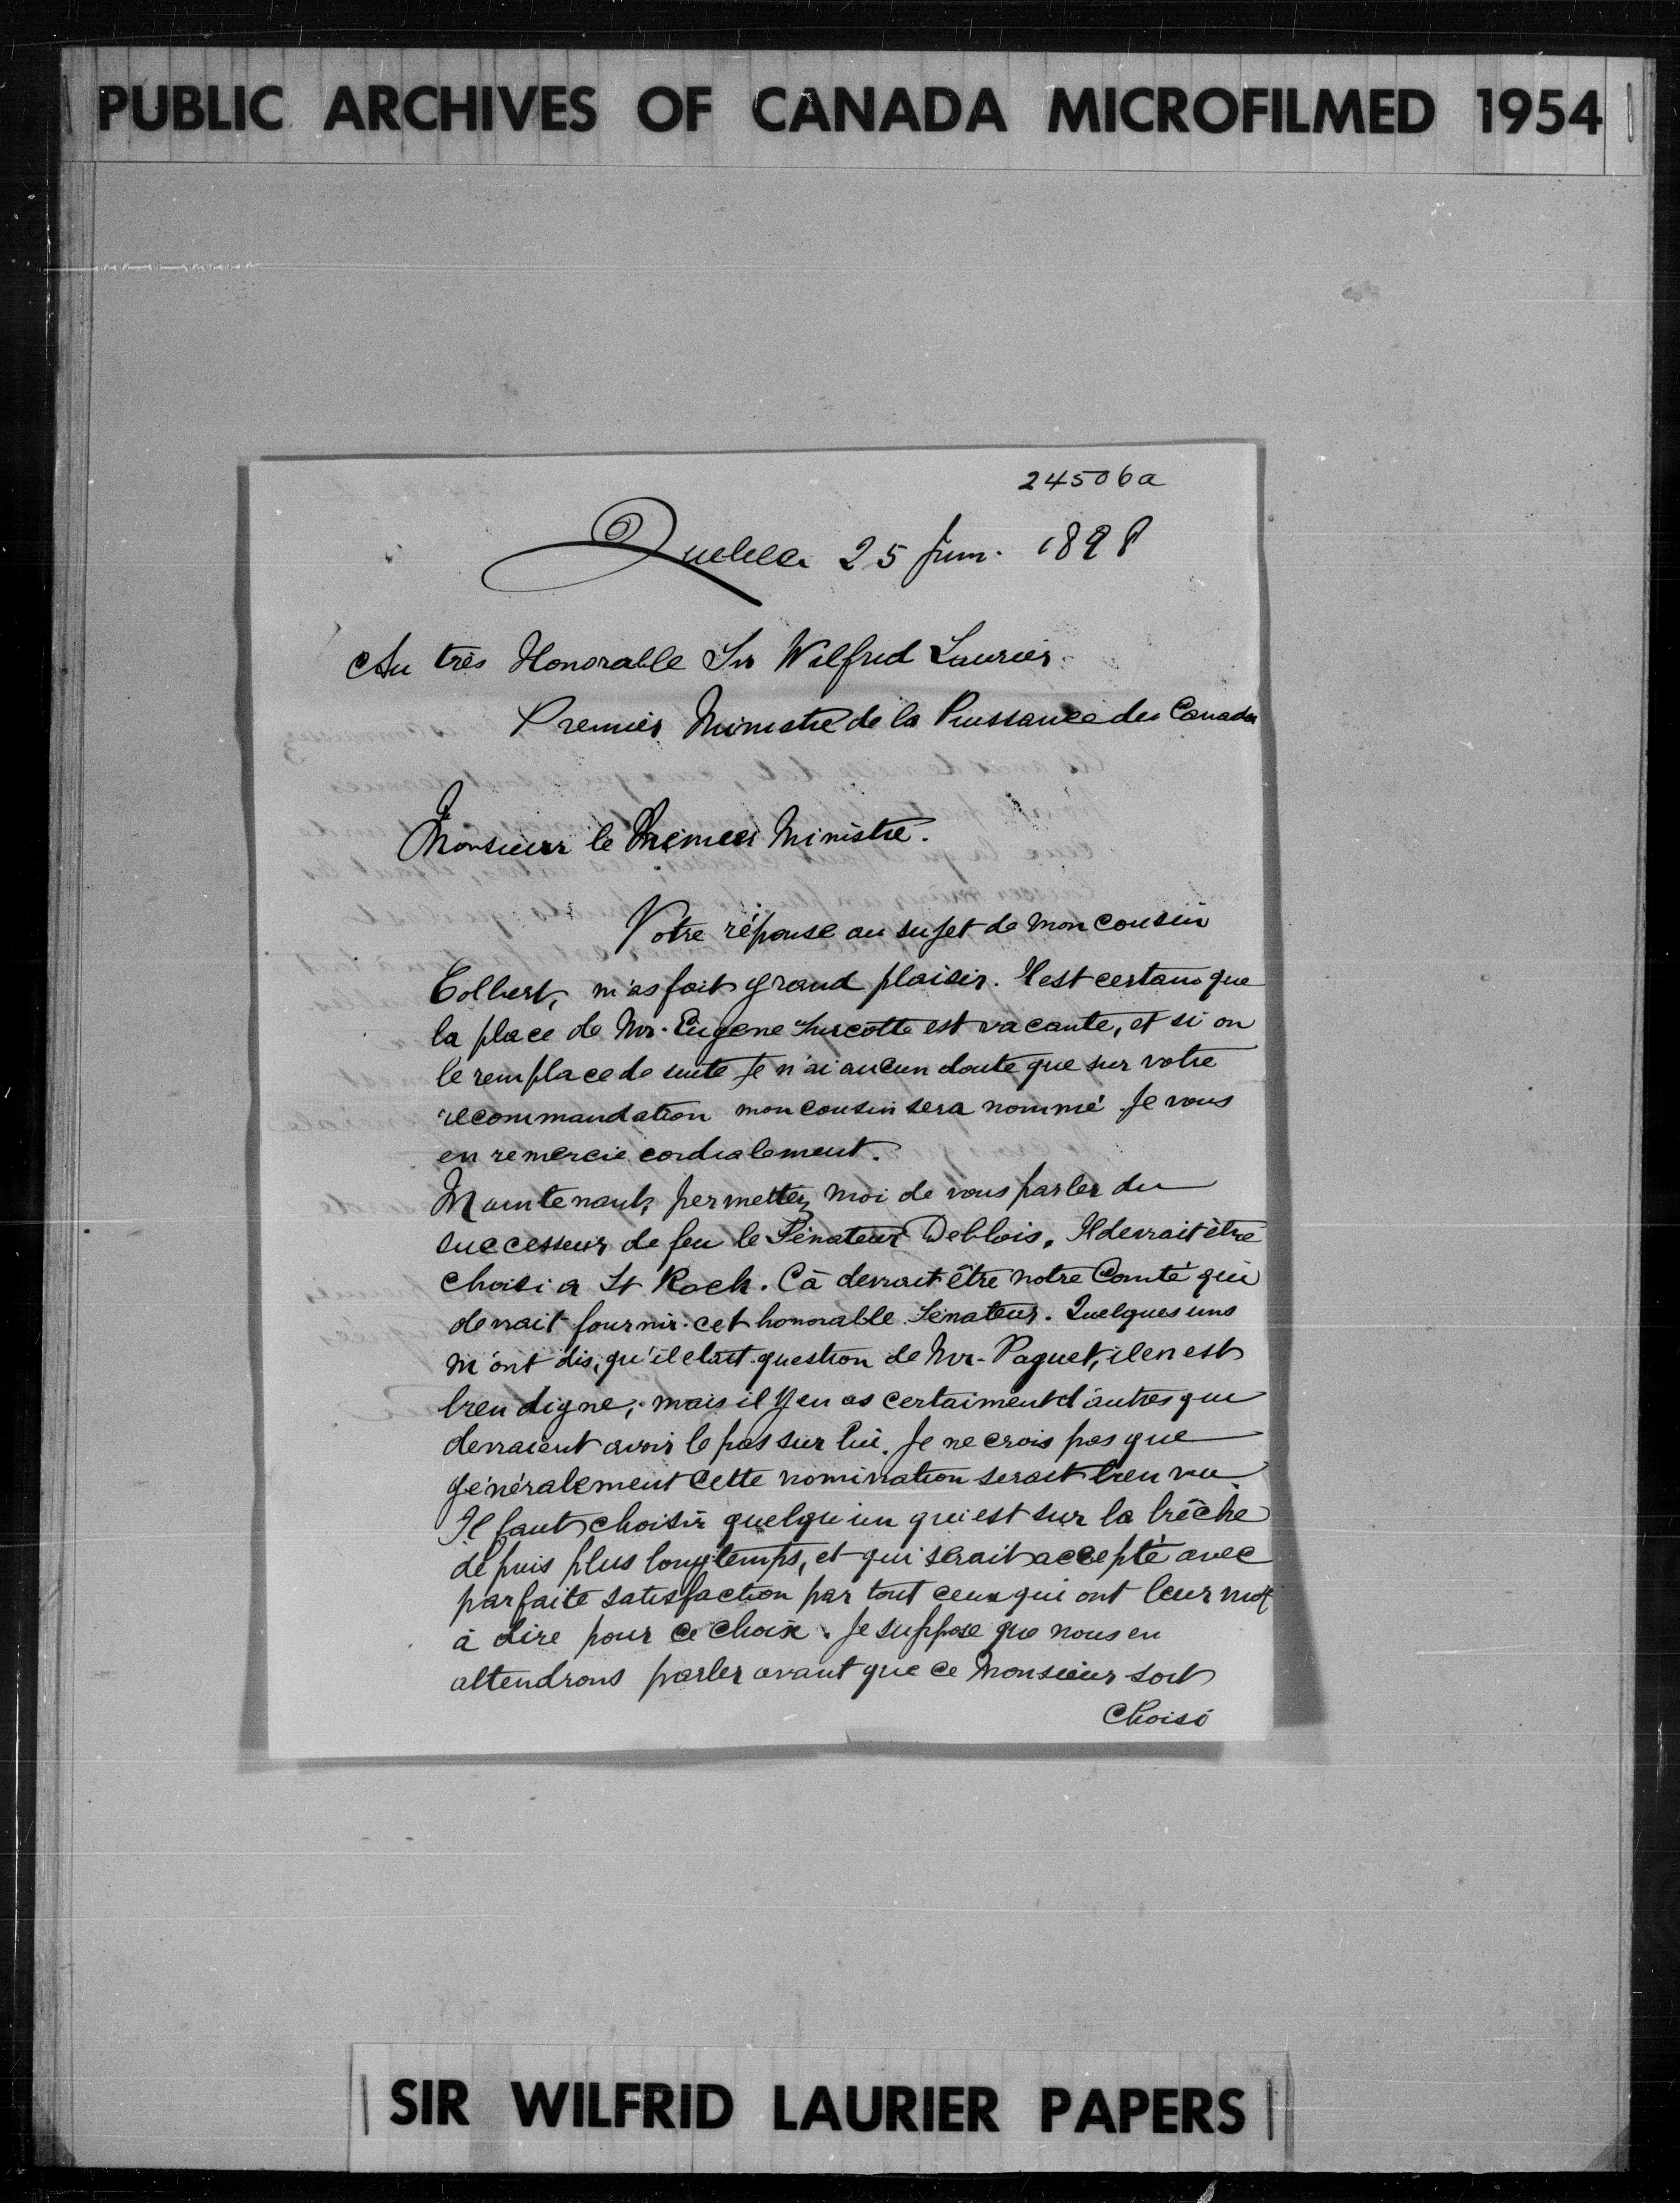 PUBLIC ARCHIVES OF CANADA MICROFILMED 1954
24506a
Quebec 25 Juin. 1898
Au très Honorable Sir Wilfrid Laurier
Premier Ministre de la Puissance du Canada
Monsieur le Premier Ministre.
Votre réponse au sujet de mon cousin
Colbert, m'as fait grand plaisir. Il est certain que
la place de Mr. Eugene Turcotte est vacante, et si on
le remplace de suite je n'ai aucun doute que sur votre
recommandation mon cousin sera nommé. Je vous
en remercie cordialement.
Maintenant, permettez moi de vous parler du
successeur de feu le Sénateur Deblois. Il devrait être
choisi a St Roch. Cà devrait être notre Comté qui
devrait fournir cet honorable Sénateur. Quelques uns
m'ont dis, qu'il etait question de Mr. Paquet, il en est
bien digne; mais il y en as certaiment d'autres qui
devraient avoir le pas sur lui. Je ne crois pas que
généralement cette nomination serait bien vu
Il faut choisir quelqu'un qui est sur la brêche
depuis plus longtemps, et qui serait accepté avec
parfaite satisfaction par tout ceux qui ont leur mot
à dire pour ce choix. Je suppose que nous en
attendrons parler avant que ce Monsieur soit
Choisi
SIR WILFRID LAURIER PAPERS